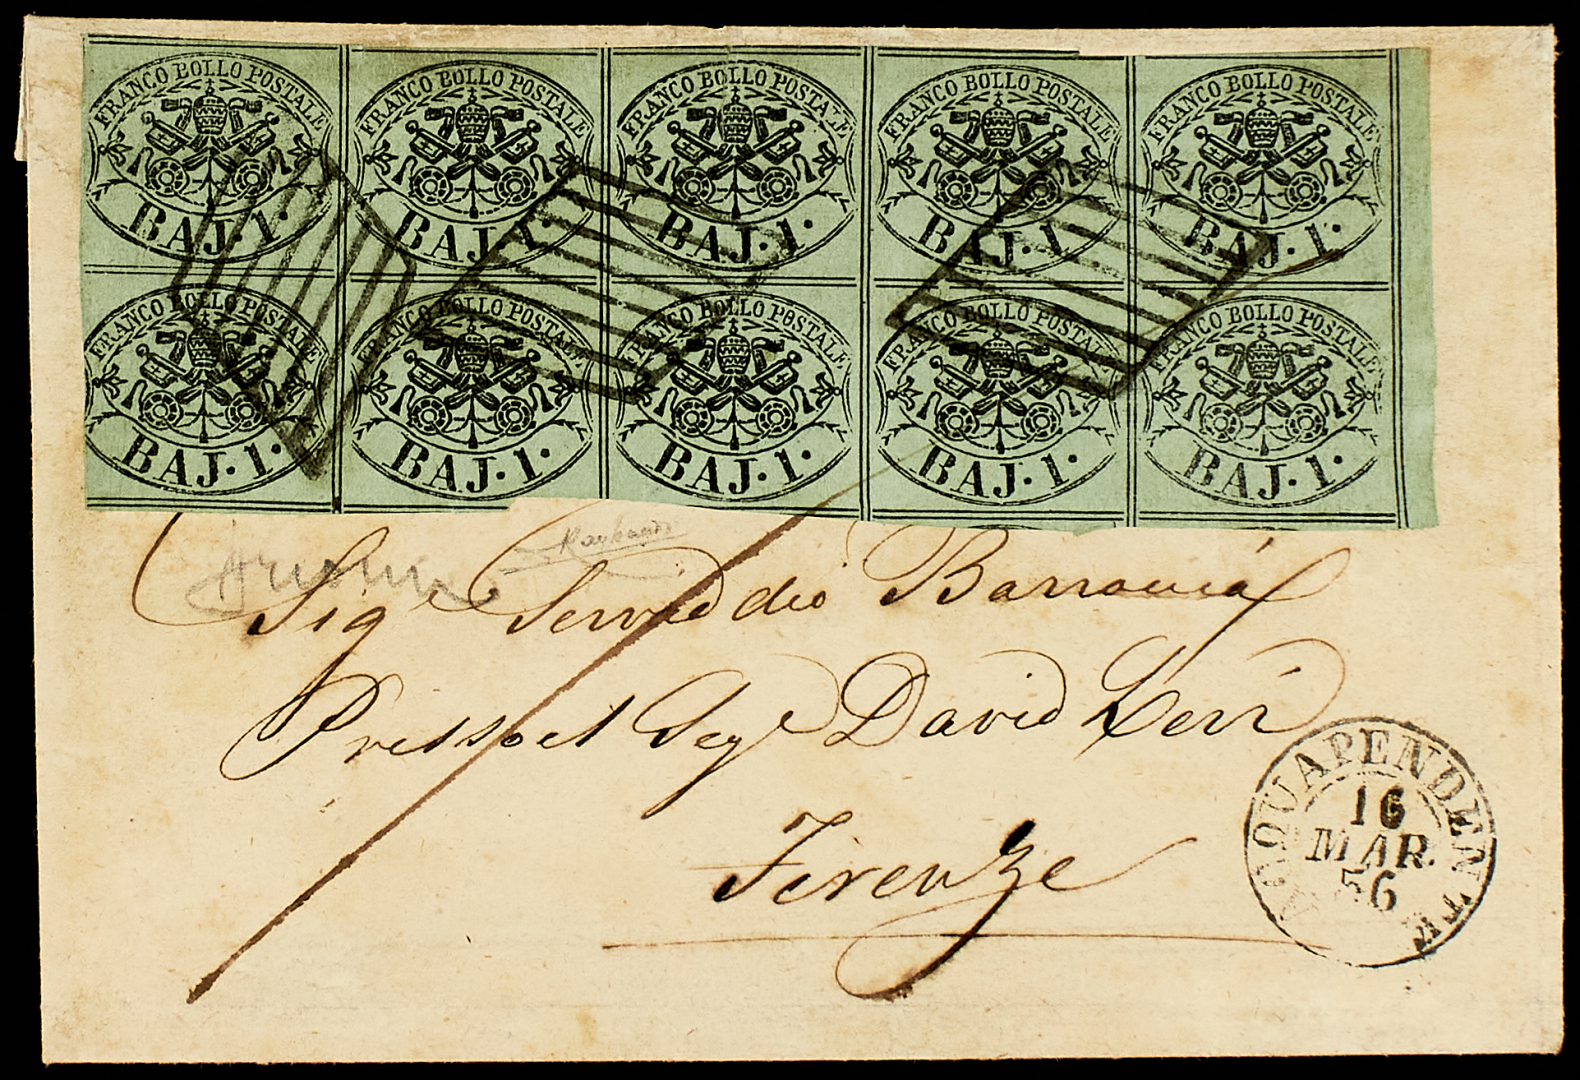 FRANCO BOLLO POSTALE FRANCO BOLLO POSTALE FRANCO BOLLO POSTALE FRANCO BOLLO POSTALE FRANCO BOLLO POSTALE
BAJ. 1. BAJ. 1. BAJ. 1. BAJ. 1. BAJ. 1.
FRANCO BOLLO POSTALE FRANCO BOLLO POSTALE FRANCO BOLLO POSTALE FRANCO BOLLO POSTALE FRANCO BOLLO POSTALE
BAJ. 1. BAJ. 1. BAJ. 1. BAJ. 1. BAJ. 1.
Sig.e Servaddio
David Levi
Firenze
ACQUAPENDENTE
16
MAR.
56